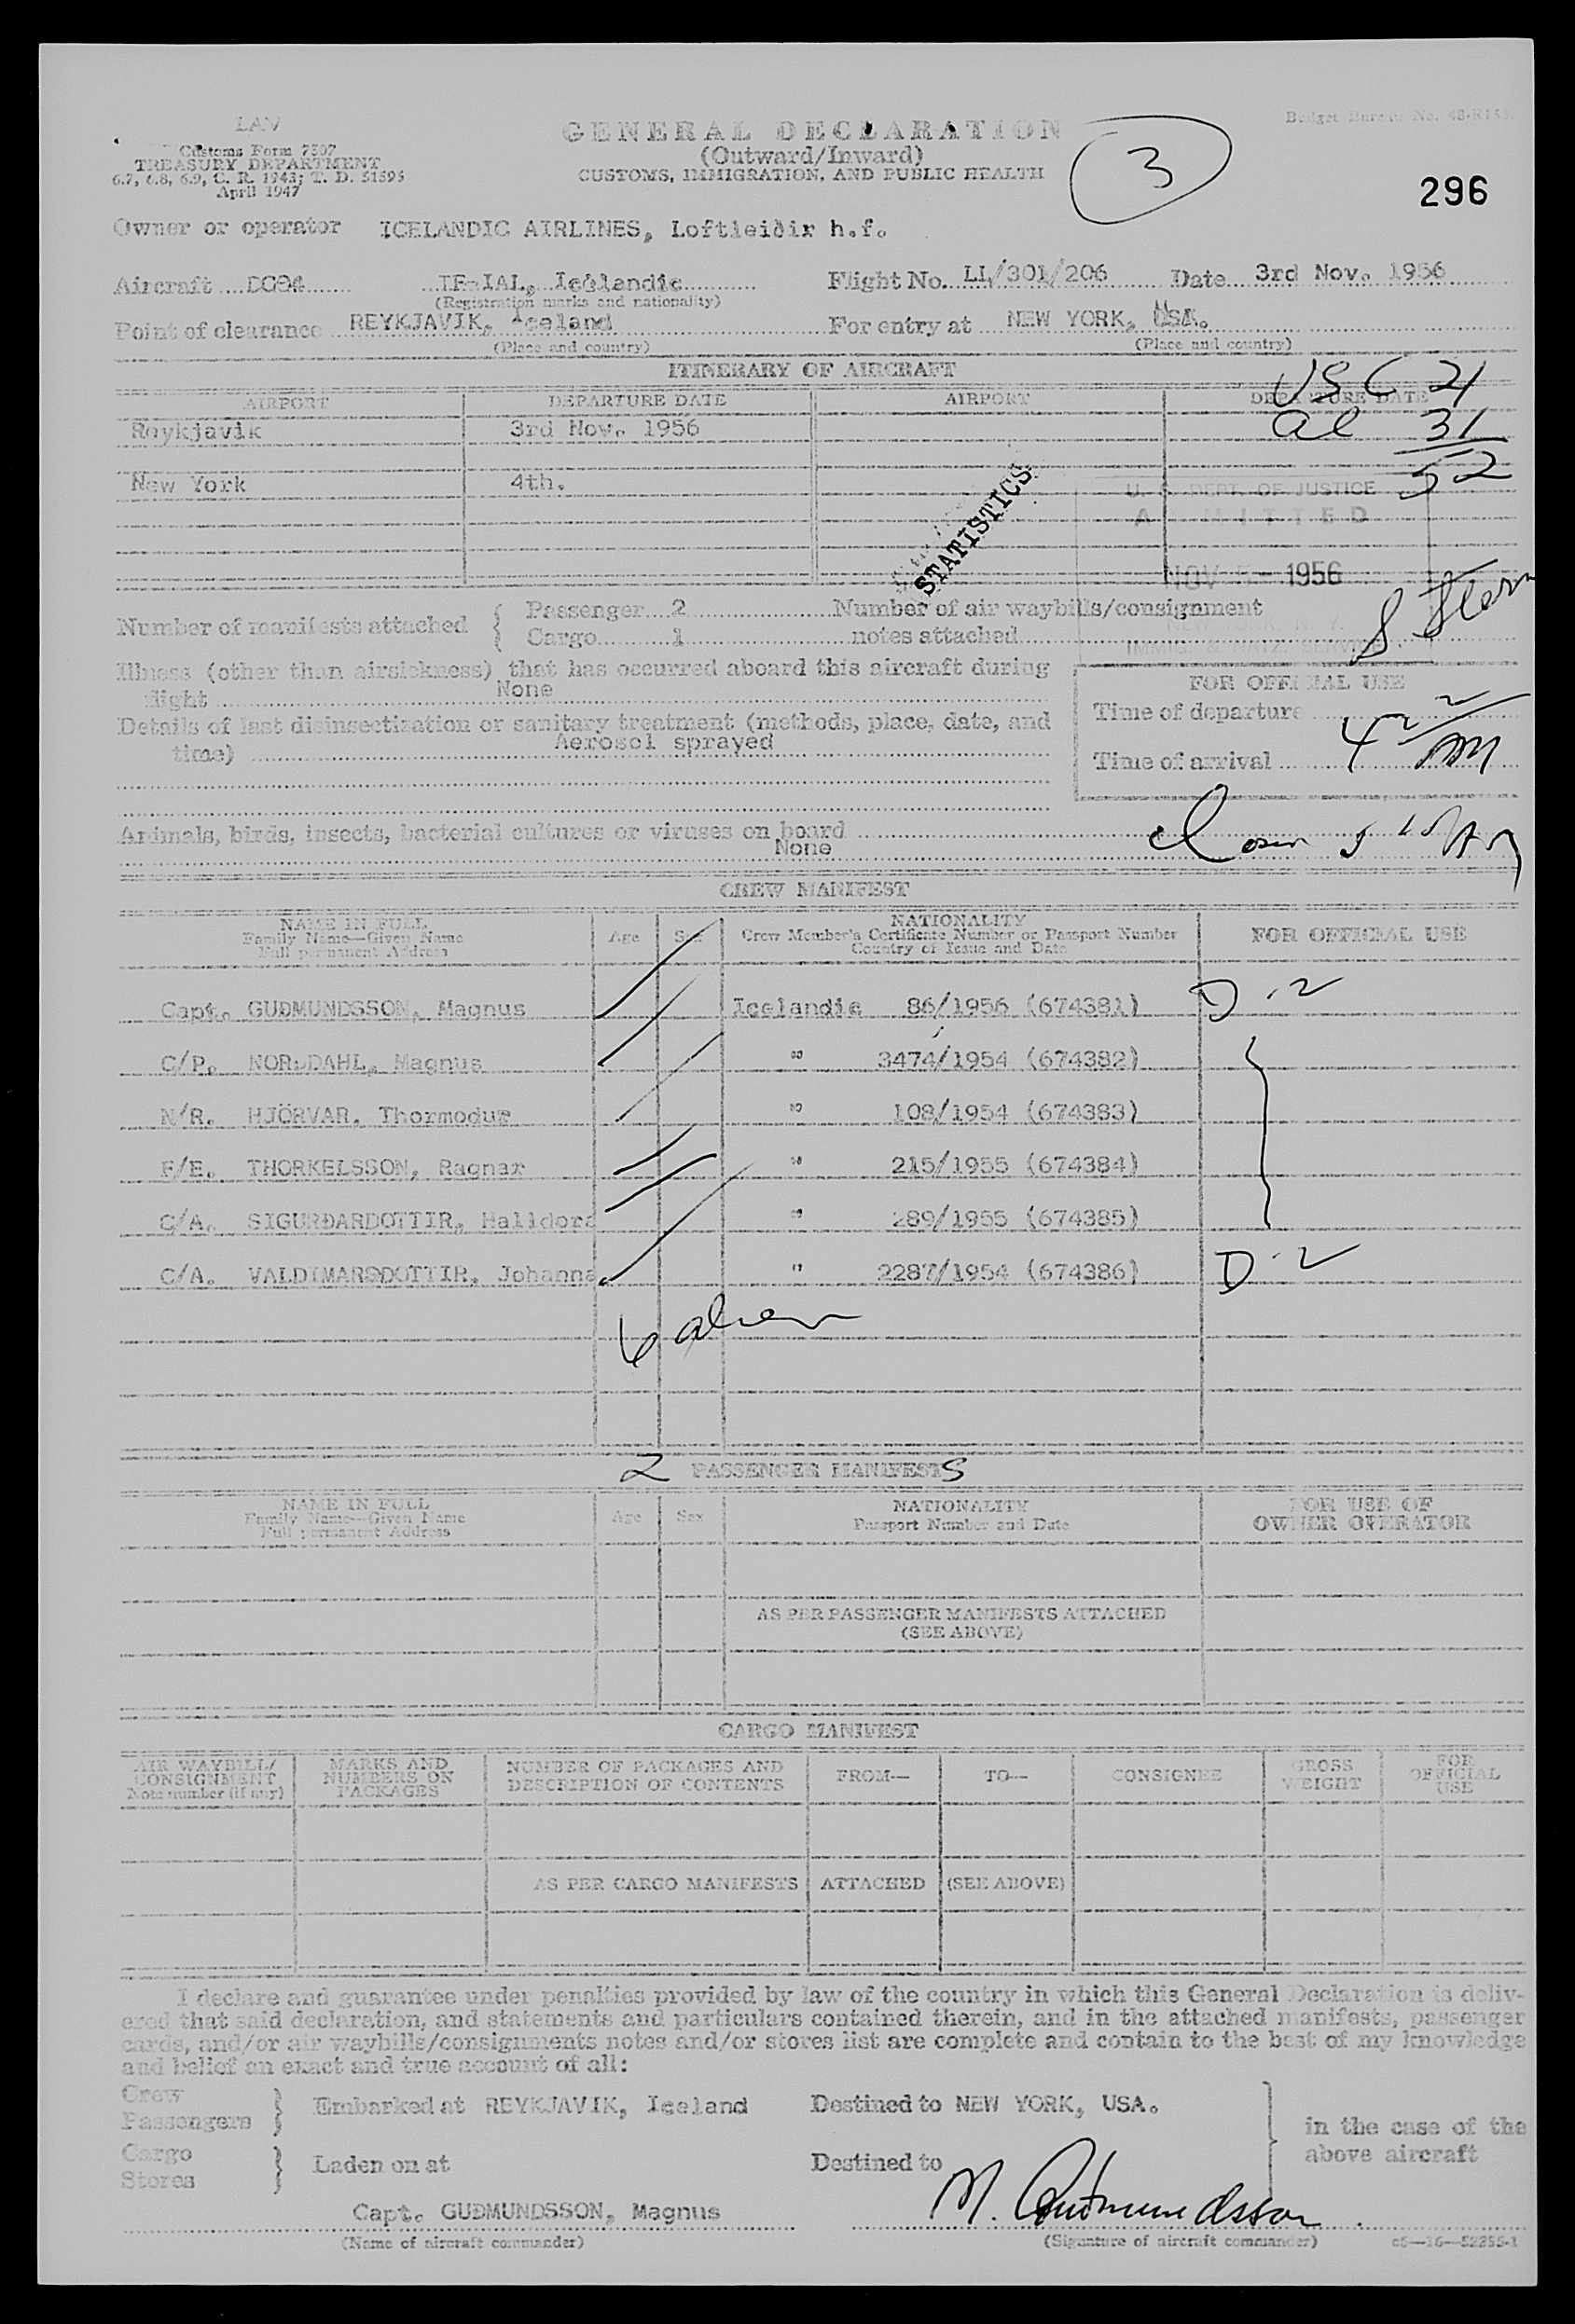 LAV
Customs Form 7507
TREASURY DEPARTMENT
6.7, 6.8, 6.9, C. R. 1943; T. D. 51595
April 1947
GENERAL DECLARATION
(Outward/Inward)
CUSTOMS, IMMIGRATION, AND PUBLIC HEALTH
3
Budget Bureau No. 48-R153
296
Owner or operator ICELANDIC AIRLINES, Loftleiðir h.f.
Aircraft DC04 TF-IAL, Icelandic Flight No. LL/301/206 Date 3rd Nov. 1956
(Registration marks and nationality)
Point of clearance REYKJAVIK, Iceland For entry at NEW YORK, USA.
(Place and country) (Place and country)
ITINERARY OF AIRCRAFT
USC 21
AIRPORT DEPARTURE DATE AIRPORT DEPARTURE DATE
Reykjavik 3rd Nov. 1956
al 31
52
New York 4th.
STATISTICS
U. S. DEPT. OF JUSTICE
ADMITTED
NOV 5 - 1956
S. Stern
Number of manifests attached { Passenger 2 Number of air waybills/consignment
Cargo 1 notes attached
IMMIG. & NATZ. SERVICE
Illness (other than airsickness) that has occurred aboard this aircraft during
flight None
FOR OFFICIAL USE
Time of departure
Details of last disinsectization or sanitary treatment (methods, place, date, and
time) Aerosol sprayed
Time of arrival
Animals, birds, insects, bacterial cultures or viruses on board
None
CREW MANIFEST
NAME IN FULL
Family Name—Given Name
Full permanent Address
Age Sex
NATIONALITY
Crew Member's Certificate Number or Passport Number
Country of Issue and Date
FOR OFFICIAL USE
Capt. GUÐMUNDSSON, Magnus Icelandic 86/1956 (674381) D-2
C/P. NORÐDAHL, Magnus " 3474/1954 (674382)
N/R. HJÖRVAR, Thormodur " 108/1954 (674383)
F/E. THORKELSSON, Ragnar " 215/1955 (674384)
C/A. SIGURÐARDOTTIR, Halldora " 289/1955 (674385)
C/A. VALDIMARSDOTTIR, Johanna " 2287/1954 (674386) D-2
6 alien
2 PASSENGER MANIFESTS
NAME IN FULL
Family Name—Given Name
Full permanent Address
Age Sex
NATIONALITY
Passport Number and Date
FOR USE OF
OWNER OPERATOR
AS PER PASSENGER MANIFESTS ATTACHED
(SEE ABOVE)
CARGO MANIFEST
AIR WAYBILL/
CONSIGNMENT
Note number (if any)
MARKS AND
NUMBERS ON
PACKAGES
NUMBER OF PACKAGES AND
DESCRIPTION OF CONTENTS
FROM— TO— CONSIGNEE
GROSS
WEIGHT
FOR
OFFICIAL
USE
AS PER CARGO MANIFESTS ATTACHED (SEE ABOVE)
I declare and guarantee under penalties provided by law of the country in which this General Declaration is deliv-
ered that said declaration, and statements and particulars contained therein, and in the attached manifests, passenger
cards, and/or air waybills/consignments notes and/or stores list are complete and contain to the best of my knowledge
and belief an exact and true account of all:
Crew
Passengers } Embarked at REYKJAVIK, Iceland Destined to NEW YORK, USA.
in the case of the
above aircraft
Cargo
Stores } Laden on at Destined to
Capt. GUÐMUNDSSON, Magnus M. Guðmundsson
(Name of aircraft commander) (Signature of aircraft commander) c6—16—52255-1